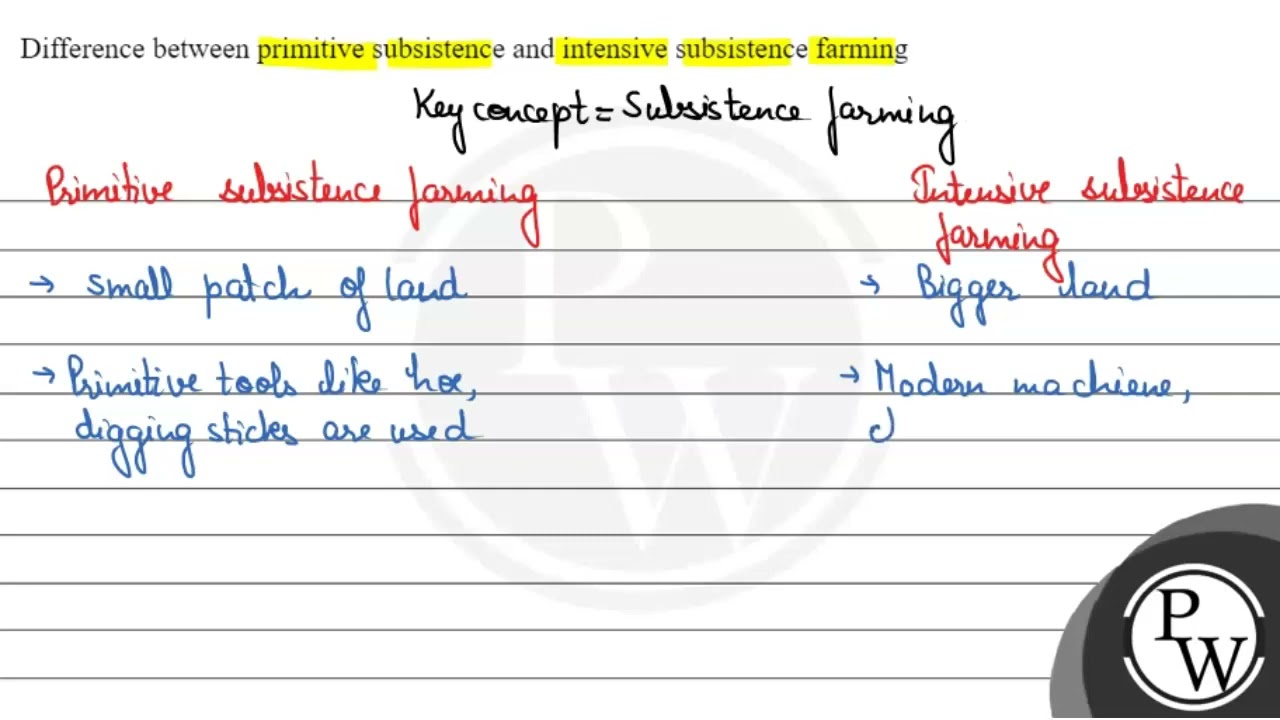 Difference between primitive subsistence and intensive subsistence farming
Key concept = Subsistence farming
Primitive subsistence farming
Intensive subsistence
farming
→ small patch of land
→ Bigger land
→ Primitive tools like hoe,
digging sticks are used
→ Modern machiene,
d
PW
P
W